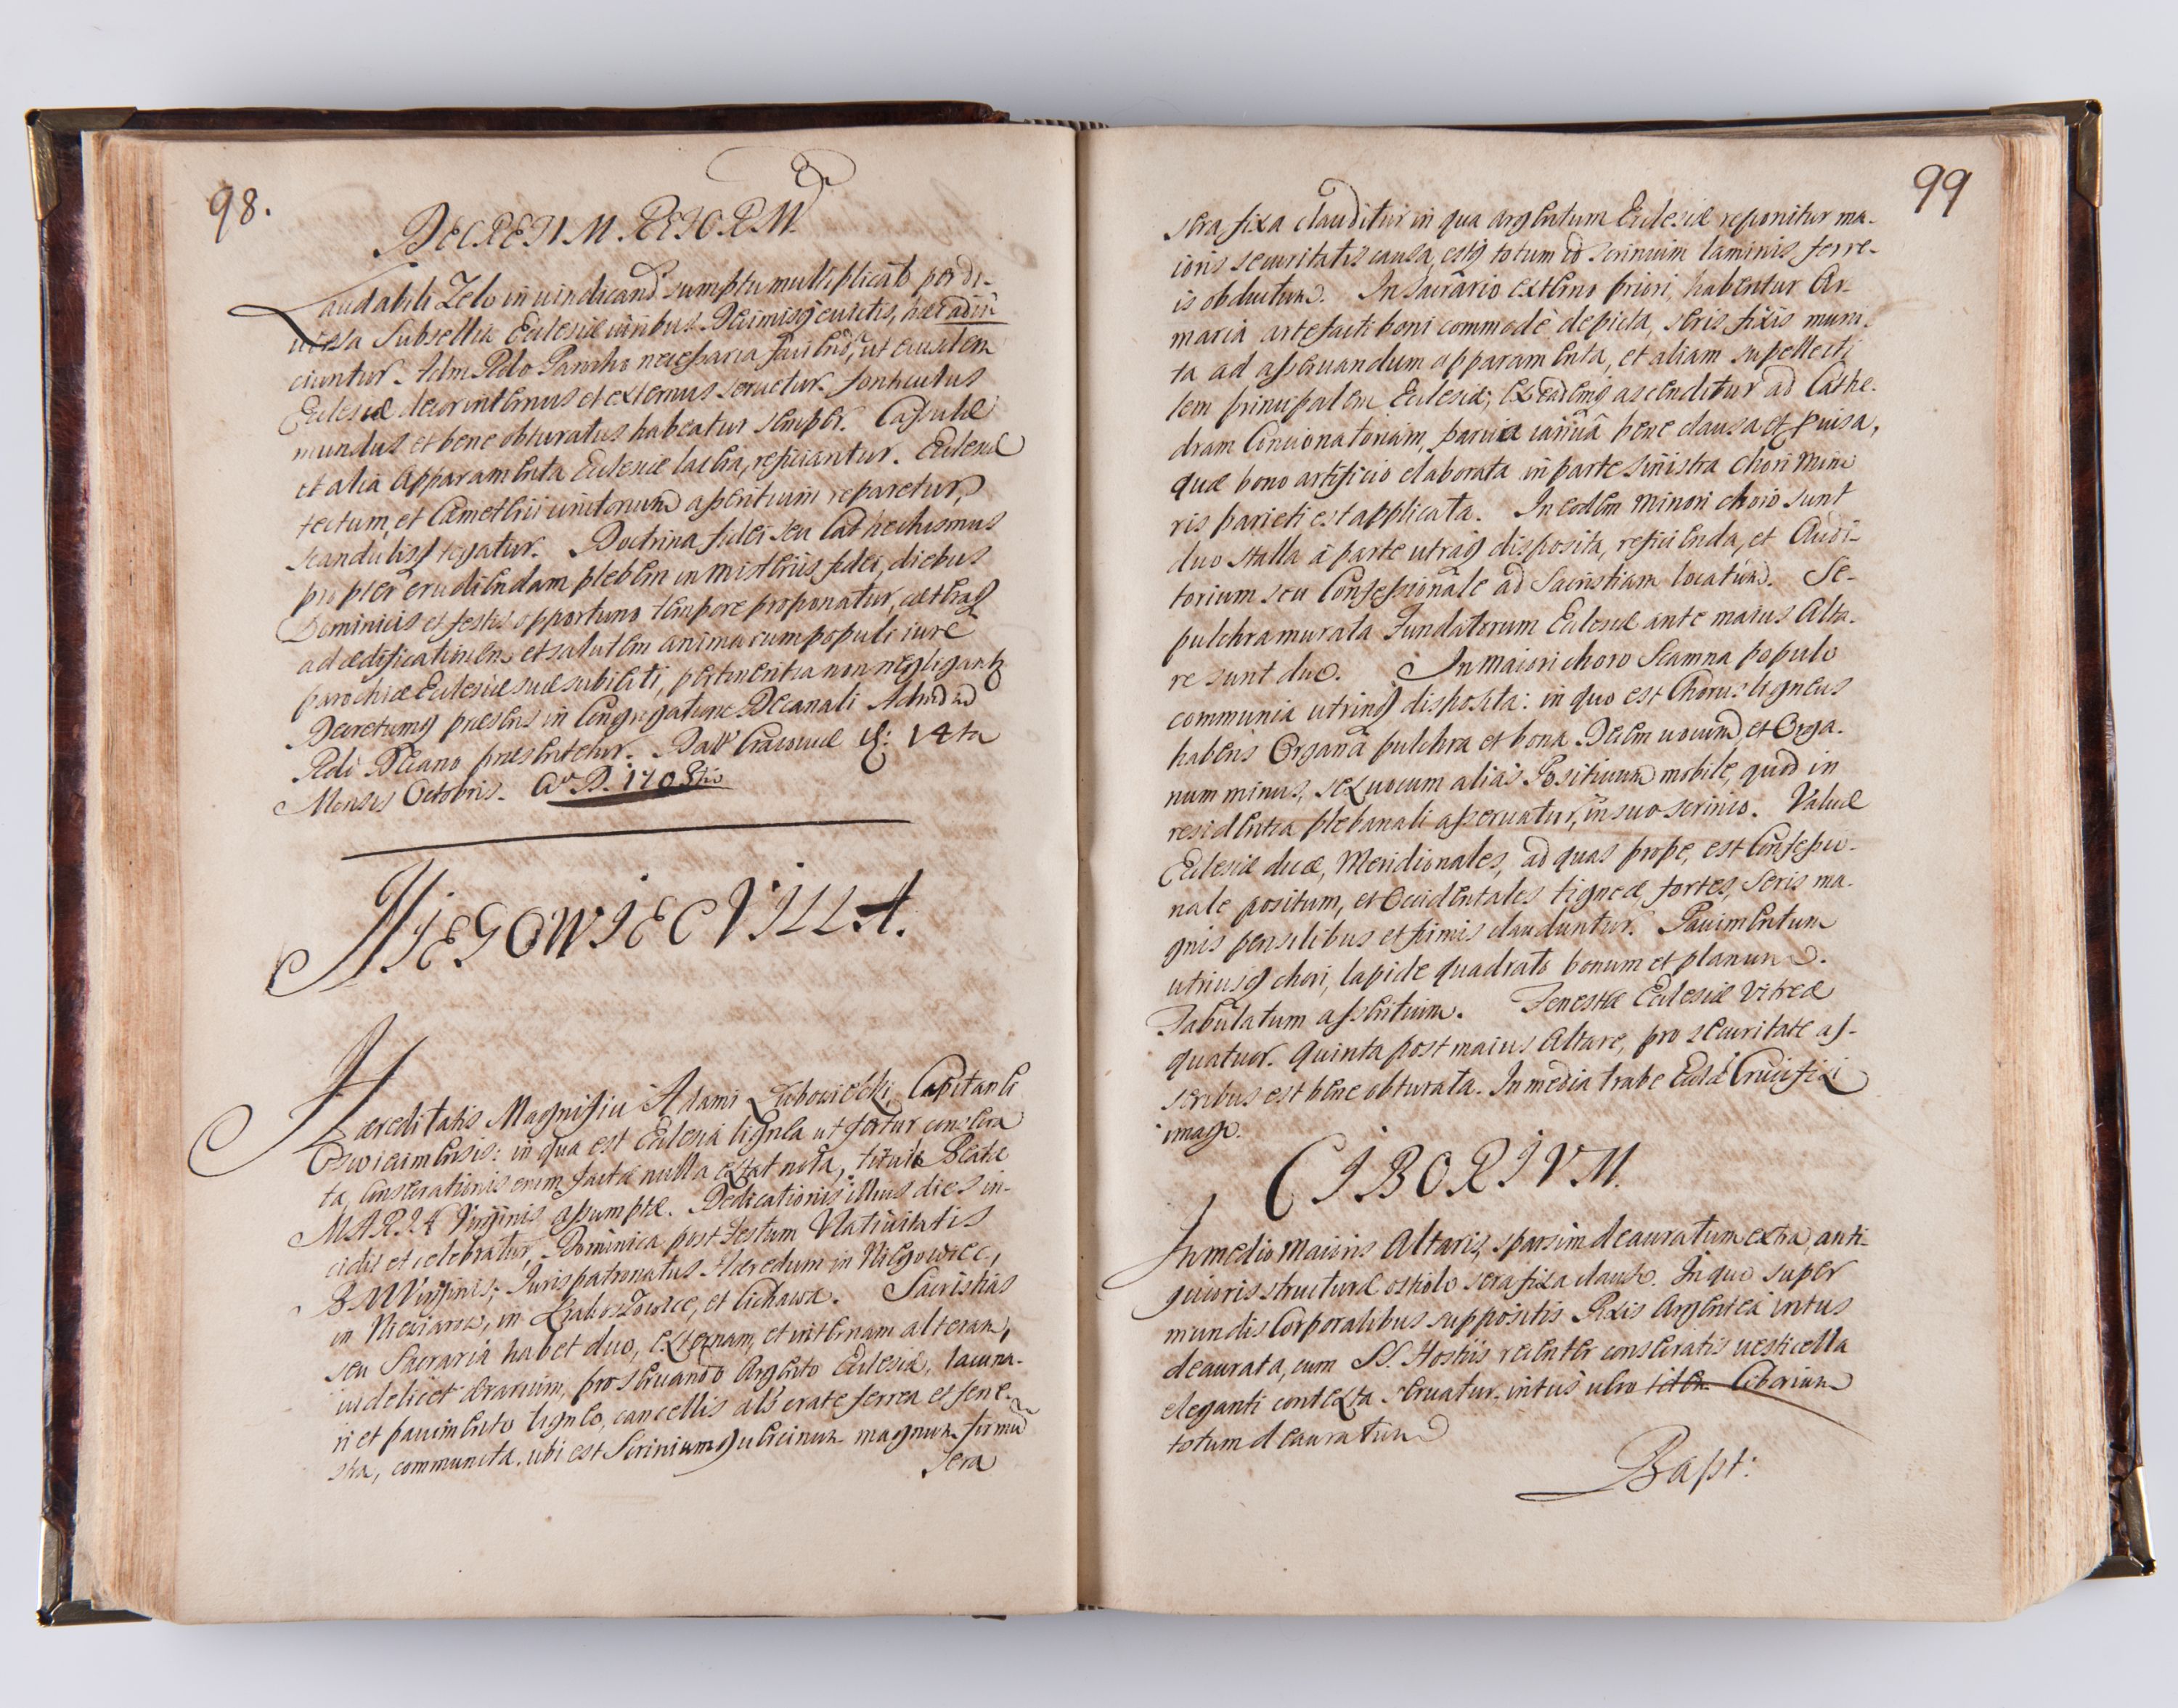 98.
DECRETVM REFORM
Laudabili Zelo in uindicand sumptu multiplicato per di-
uersa Subsellia Ecclesiæ uiribus Decimisq euictis, hæc adin
ciuntur. Adm Rdo Parocho necessaria faciend, ut eiusdem
Ecclesiæ decor internus et externus seruetur. fonticulus
mundus et bene obturatus habeatur semper. Casulæ
et alia Apparamenta Ecclesiæ lacera, reficiantur. Ecclesiæ
tectum, et Cæmeterii cinctorium assertium reparetur,
scandulisq tegatur. Doctrina fidei seu Cathechismus
propter erudiendam plebem in misteriis fidei, diebus
Dominicis et festis opportuno tempore proponatur, cæteraq
ad ædificationem et salutem animarum populi iure
parochiæ Ecclesiæ suæ subiecti, pertinentia non negligantr
Decretumq præsens in Congregatione Decanali Admdnd
Rdo Decano præsentetur. Datt Cracouiæ d: 14ta
Mensis Octobris. Ao D. 1703tio
NIEGOWIEC VILLA.
Hæreditatis Magnifici Adami Łubowiecki, Capitanei
Oswiecimensis: in qua est Ecclesia lignea ut fertur consecra
ta, Consecrationis enim factæ nulla extat nota, tituli Beatæ
MARIÆ Virginis assumptæ. Dedicationis illius dies in-
cidit et celebratur, Dominica post Festum Natiuitatis
B M Virginis; Juris patronatus Hæredum in Niegowiec,
in Niewiarow, in Krakuszowice, et Cichawa. Sacristias
seu Sacraria habet duo, externam, et internam alteram,
uidelicet ærarium, pro seruando Argento Ecclesiæ, lacuna-
ri et pauimento ligneo, cancellis als crate ferrea et fene-
stra, communita. ubi est Scriniumq uercinum magnum firmu
Sera
99
sera fixa clauditur in qua argentum Ecclesiæ reponitur ma-
ioris securitatis causa, estq totum id scrinium laminis ferre-
is obductum. In Sacrario externo priori, habentur Ar-
maria artefacti boni commodè depicta, seris fixis muni-
ta ad asseruandum apparamenta, et aliam supellecti
lem principalem Ecclesiæ; ex eademq ascenditur ad Cathe-
dram Concionatoriam, paruia ianuâ bene clausa et peruisa,
quæ bono artificio elaborata in parte sinistra chori mino
ris parieti est applicata. In eodem minori choro sunt
duo stalla à parte utraq disposita, reficienda, et Audi-
torium seu Confessionale ad Sacristiam locatum. Se-
pulchra murata Fundatorum Ecclesiæ ante maius Alta-
re sunt duo. In maiori choro Scamna populo
communia utrinq disposita: in quo est Chorus ligneus
habens Organa pulchra et bona Decem uocum, et Orga-
num minus, sex uocum alias Positiuum mobile, quod in
residentia plebanali asseruatur, in suo scrinio. Valuæ
Ecclesiæ duæ, Meridionales, ad quas prope, est Confessio-
nale positum, et Occidentales ligneæ fortes, seris ma-
gnis pensilibus et firmis clauduntur. Pauimentum
utriusq chori, lapide quadrato bonum et planum.
Tabulatum assertium. Fenestræ Ecclesiæ Vitreæ
quatuor. Quinta post maius Altare, pro securitate as-
seribus est bene obturata. In media trabe Eccle Crucifixi
imago.
CIBORIVM.
In medio Maioris Altaris, sparsim deauratum extra, anti-
quioris structuræ ostiolo sera fixa clauso. In quo super
mundis Corporalibus suppositis Pixis Argentea intus
deaurata, cum SS. Hostiis recenter consecratis uesticella
eleganti contexta seruatur. intus uero Ciborium
totum deauratum
Bapt: